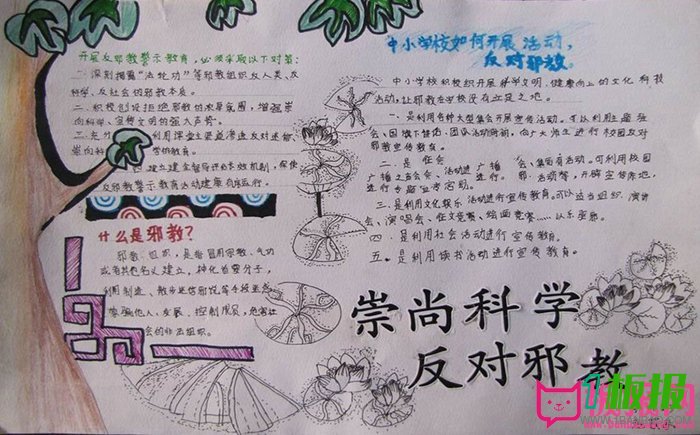 开展反邪教警示教育，必须采取以下对策：
一、深刻揭露“法轮功”等邪教组织反人类、反
科学、反社会的邪教本质。
二、积极创设拒绝邪教的浓厚氛围，增强崇
尚科学、宣传文明的强大声势。
三、充分利用课堂主渠道渗透反对迷信
崇尚科学的教育。
四、建立健全督导评估长效机制，保使
反邪教警示教育活动健康有序运行。
什么是邪教？
邪教组织，是指冒用宗教、气功
或者其他名义建立，神化首要分子，
利用制造、散布迷信邪说等手段蛊惑
蒙骗他人，发展、控制成员，危害社
会的非法组织。
中小学校如何开展活动，
反对邪教。
中小学校积极组织开展科学文明、健康向上的文化科技
活动，让邪教在学校没有立足之地。
一、是利用各种大型集会开展宣传活动。可以利用主题班
会、国旗下讲话、团队活动时间，向广大师生进行校园反对
邪教宣传教育。
二、是
进行专题宣传活动。
三、是利用文化娱乐活动进行宣传教育。可以适当组织、演讲
会、演唱会、征文竞赛、绘画竞赛……以乐受感。
四、是利用社会活动进行宣传教育。
五、是利用读书活动进行宣传教育。
崇尚科学
反对邪教
板报